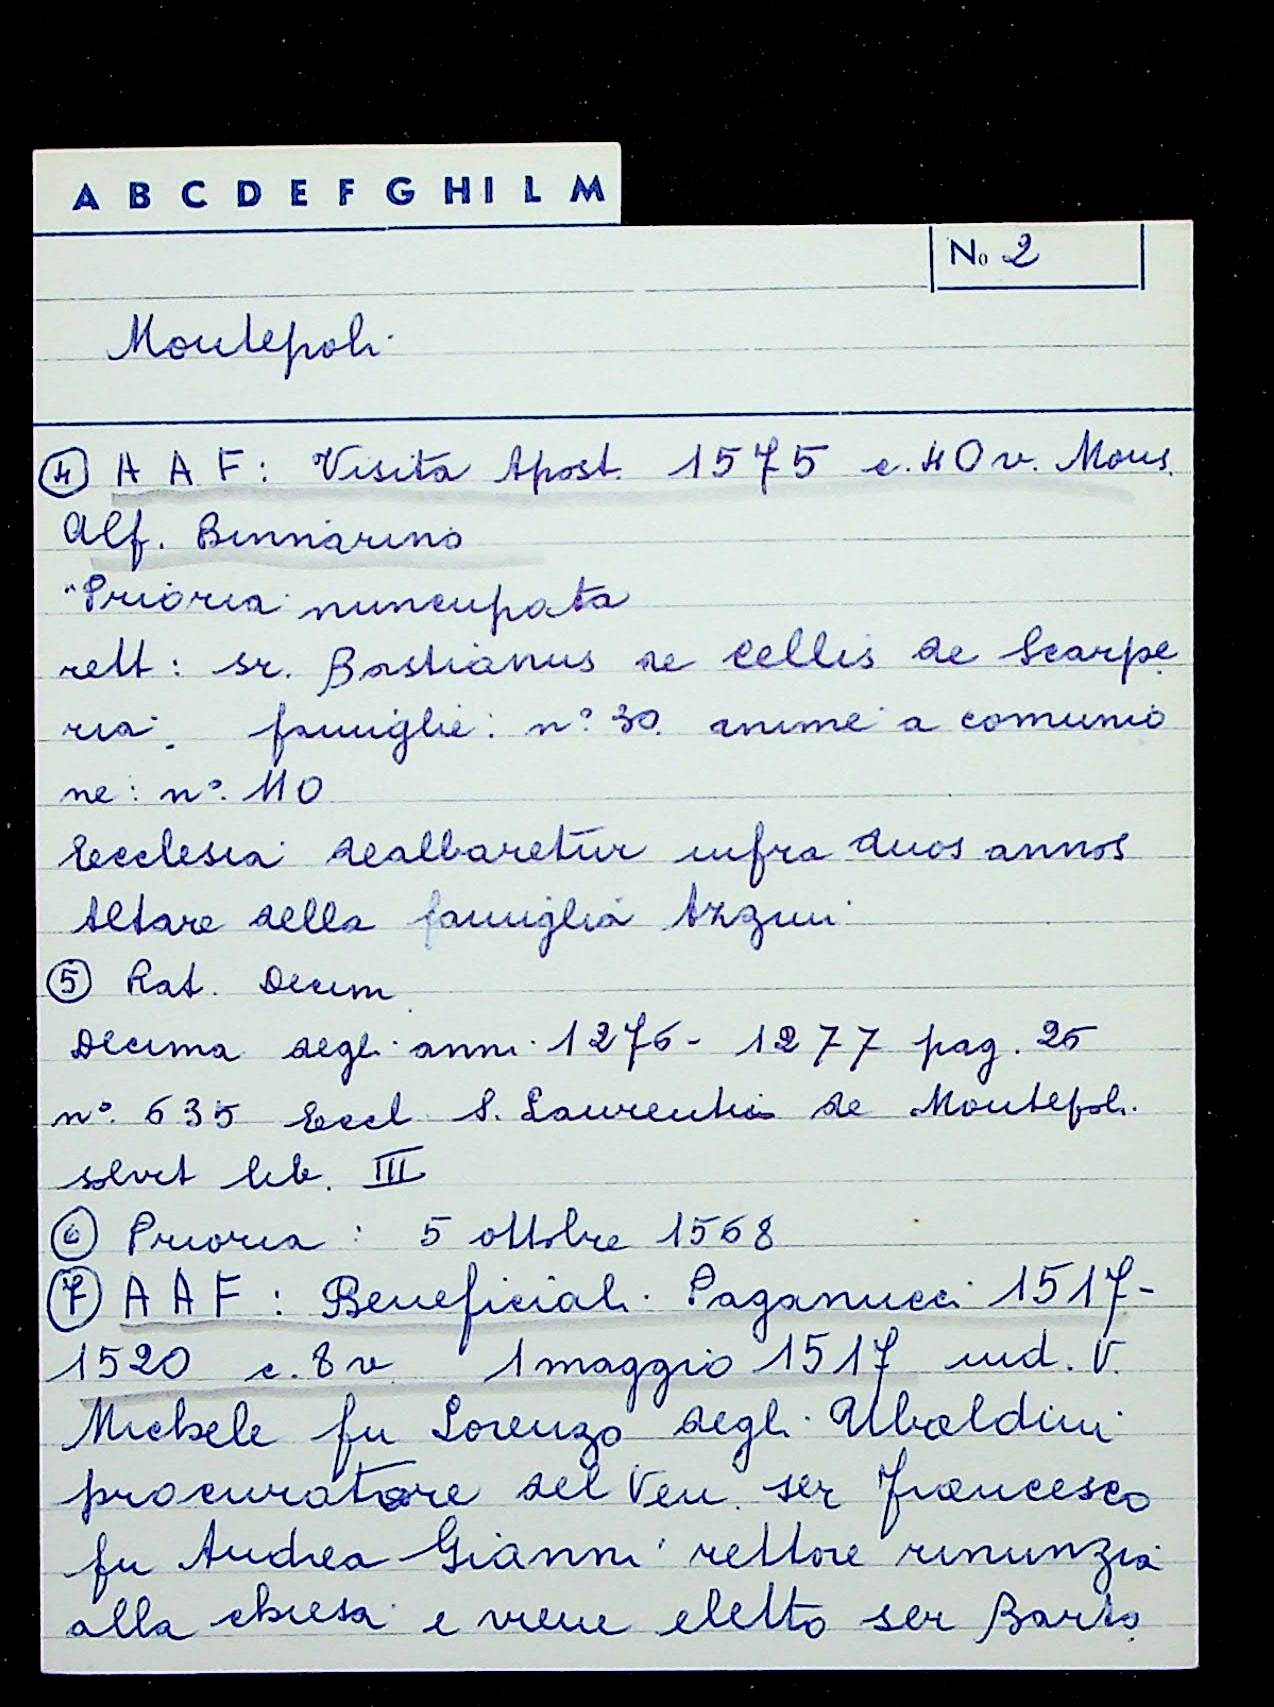 A B C D E F G H I L M
No 2
Montepoli
4 A A F: Visita Apost. 1575 c. 40 v. Mons.
Alf. Binnarino
"Prioria nuncupata
rett: sr. Bastianus de Cellis de Scarpe
ria. famiglie: n° 30. anime a comunio
ne: n°. 110
Ecclesia dealbaretur infra duos annos
Altare della famiglia Azzini
5 Rat. Decim
Decima degli anni 1276- 1277 pag. 26
n°. 635 Eccl S. Laurentii de Montepoli
solvit lib. III
6 Prioria: 5 ottobre 1568
7 A A F: Beneficiali Paganucci 1517-
1520 c. 8 v 1 maggio 1517 ind. V.
Michele fu Lorenzo degli Ubaldini
procuratore del Ven. ser Francesco
fu Andrea Gianni rettore rinunzia
alla chiesa e viene eletto ser Barto